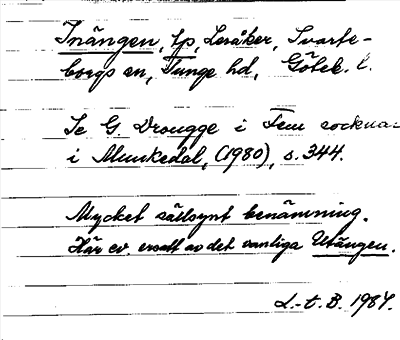 Inängen, tp, Leråker, Svarte-
borgs sn, Tunge hd, Göteb. l.
Se G. Drougge i Fem sockna-
i Munkedal, (1980), s. 344.
Mycket sällsynt benämning.
Här ev. ersatt av det vanliga Utängen.
L.-t. B. 1984.